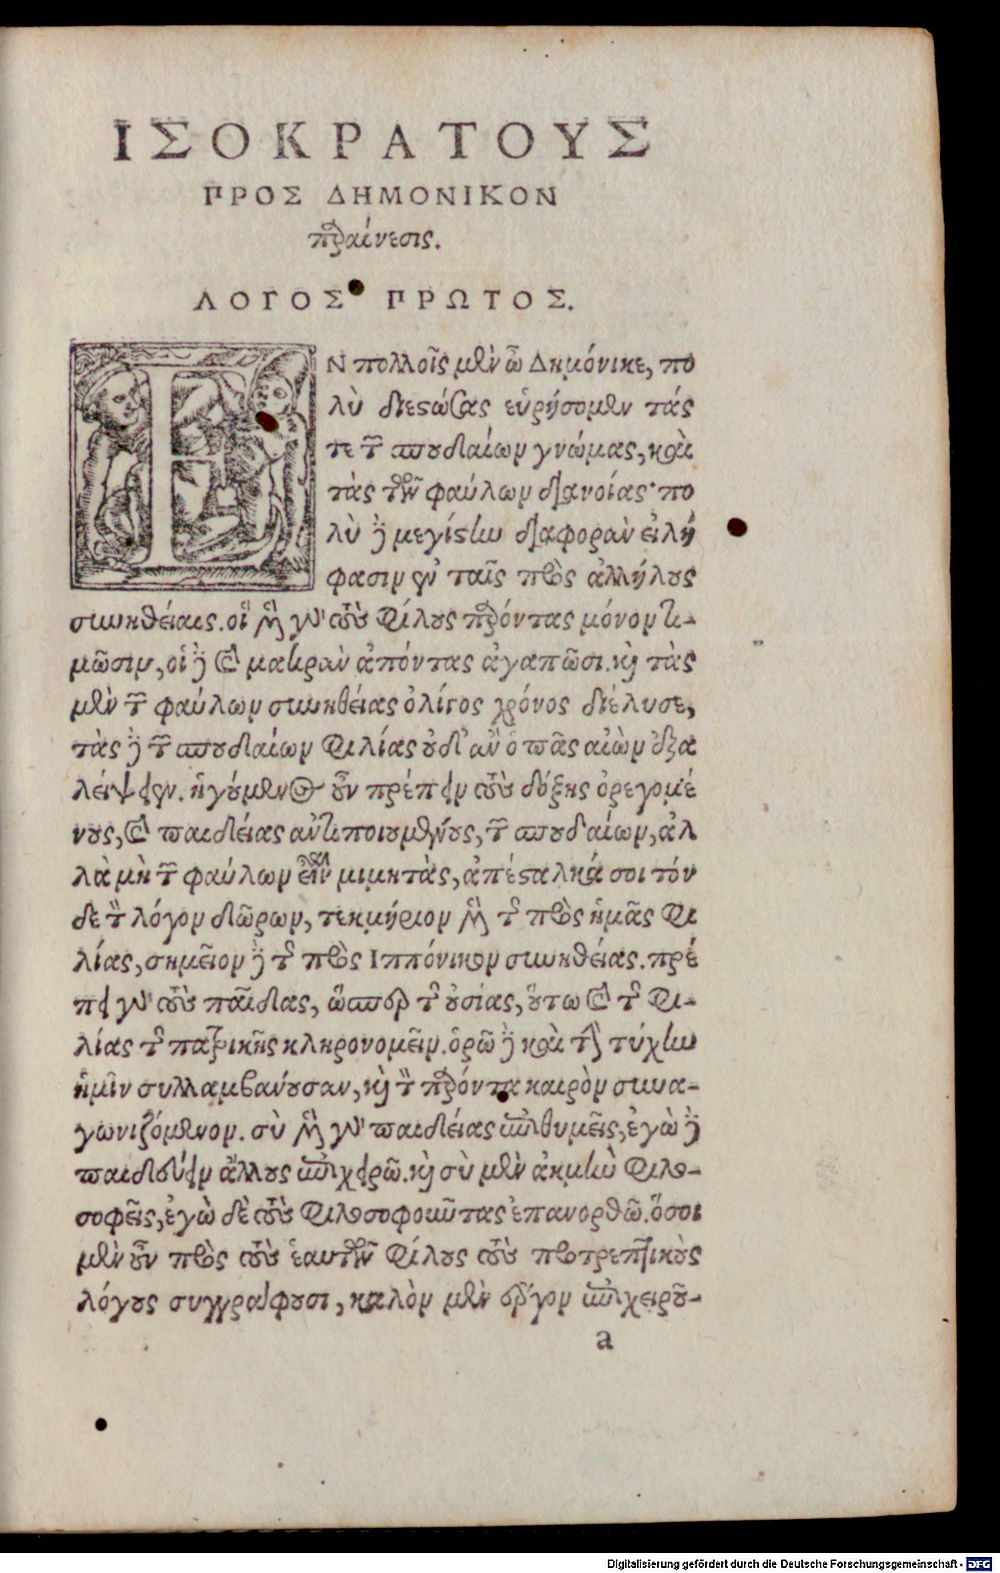 ΙΣΟΚΡΑΤΟΥΣ
ΠΡΟΣ ΔΗΜΟΝΙΚΟΝ
παραίνεσις.
ΛΟΓΟΣ ΠΡΩΤΟΣ.
ΕΝ πολλοῖς μὲν ὦ Δημόνικε, πο
λὺ διεστώσας εὑρήσομεν τάς
τε τῶν σπουδαίων γνώμας, καὶ
τὰς τῶν φαύλων διανοίας· πο
λὺ δὲ μεγίστην διαφορὰν εἰλή
φασιν ἐν ταῖς πρὸς ἀλλήλους
συνηθείαις. οἵ μὲν γὰρ τοὺς φίλους παρόντας μόνον τι-
μῶσιν, οἱ δὲ καὶ μακρὰν ἀπόντας ἀγαπῶσι. καὶ τὰς
μὲν τῶν φαύλων συνηθείας ὀλίγος χρόνος διέλυσε,
τὰς δὲ τῶν σπουδαίων φιλίας οὐδ' ἂν ὁ πᾶς αἰὼν ἐξα
λείψειεν. ἡγούμενος οὖν πρέπειν τοὺς δόξης ὀρεγομέ
νους, καὶ παιδείας ἀντιποιουμένους, τῶν σπουδαίων, ἀλ
λὰ μὴ τῶν φαύλων εἶναι μιμητὰς, ἀπέσταλκά σοι τόν
δε τὸν λόγον δῶρων, τεκμήριον μὲν τῆς πρὸς ἡμᾶς φι
λίας, σημεῖον δὲ τῆς πρὸς Ιππόνικον συνηθείας. πρέ
πει γὰρ τοὺς παῖδας, ὥσπερ τῆς οὐσίας, οὕτω καὶ τῆς φι-
λίας τῆς πατρικῆς κληρονομεῖν. ὁρῶ δὲ καὶ τὴν τύχην
ἡμῖν συλλαμβανούσαν, καὶ τὸν παρόντα καιρὸν συνα-
γωνιζόμενον. σὺ μὲν γὰρ παιδείας ἐπιθυμεῖς, ἐγὼ δὲ
παιδεύειν ἄλλους ἐπιχειρῶ. καὶ σὺ μὲν ἀκμὴν φιλο-
σοφεῖς, ἐγὼ δὲ τοὺς φιλοσοφοῦντας ἐπανορθῶ. ὅσοι
μὲν οὖν πρὸς τοὺς ἑαυτῶν φίλους τοὺς προτρεπτικοὺς
λόγους συγγράφουσι, καλὸν μὲν ἔργον ἐπιχειροῦ-
a
Digitalisierung gefördert durch die Deutsche Forschungsgemeinschaft - DFG